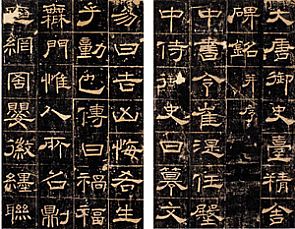 大唐御史臺精舍
碑銘并序
中書令崔湜任殿
中侍御史日纂文
易曰吉凶悔吝生
乎動也傳曰禍福
無門惟人所召則
網罔嬰徽纆聯